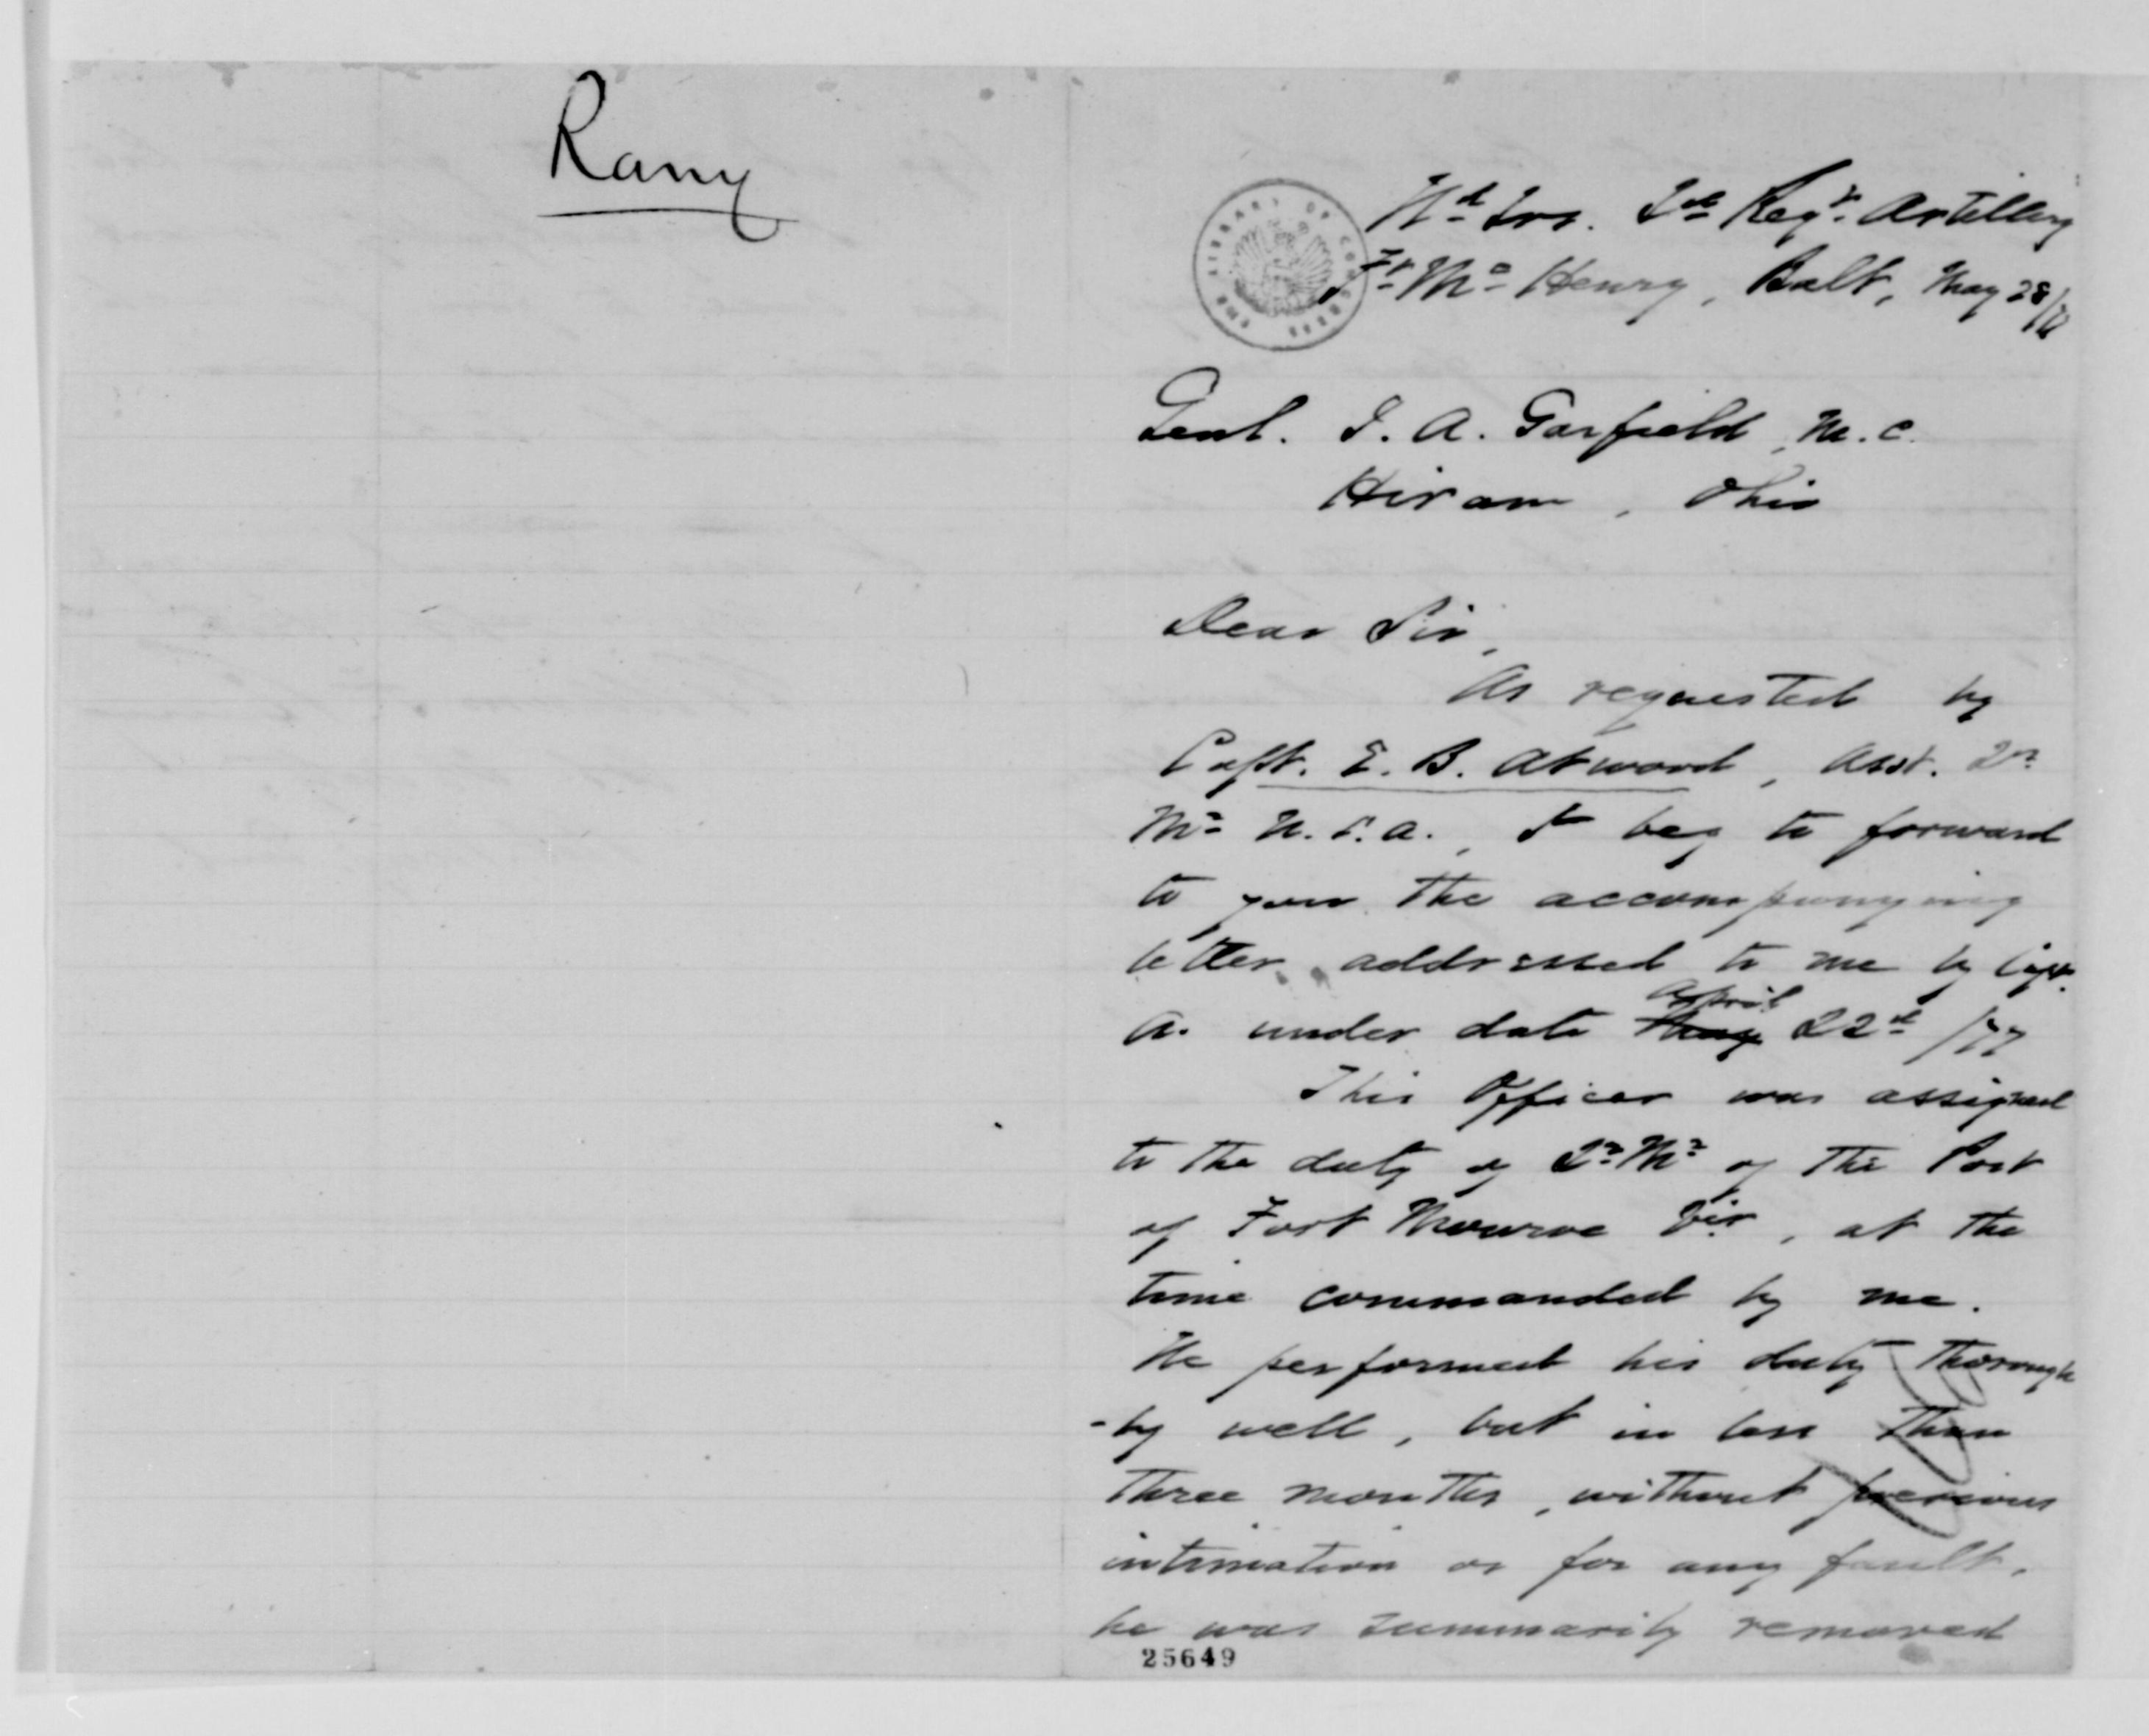 Army
Hd Qrs. 2d Regt. Artillery
Ft McHenry, Balt, May 28/77
Genl. J. A. Garfield, M.C.
Hiram, Ohio
Dear Sir,
As requested by
Capt. E. B. Atwood, Asst. Qr
Mr U.S.A., I beg to forward
to you the accompanying
letter, addressed to me by Capt.
April
A. under date May 22d /77
This Officer was assigned
to the duty of Qr Mr of the Post
of Fort Monroe Vir, at the
time commanded by me.
He performed his duty thorough
-ly well, but in less than
three months, without previous
intimation or for any fault,
he was summarily removed
25649
LIBRARY OF CONGRESS